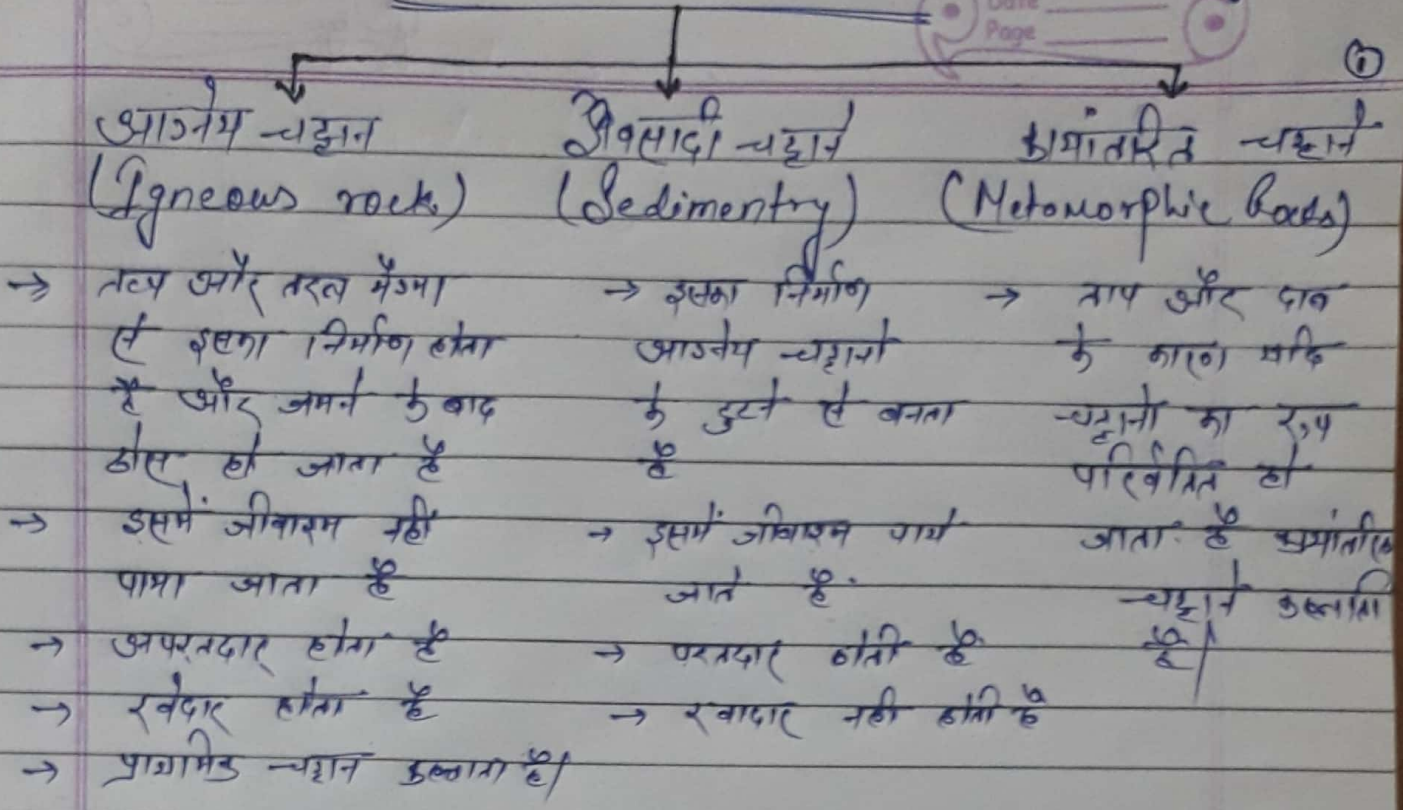 Date
Page
①
आग्नेय चट्टान
(Igneous rock)
→ तप्त और तरल मैग्मा
से इसका निर्माण होता
है और जमने के बाद
ठोस हो जाता है
→ इसमें जीवाश्म नही
पाया जाता है
→ अपरतदार होता है
→ रवेदार होता है
→ प्राथमिक चट्टान कहलाता है।
अवसादी चट्टाने
(Sedimentry)
→ इसका निर्माण
आग्नेय चट्टानो
के टुटने से बनता
है
→ इसमें जीवाश्म पाये
जाते है.
→ परतदार होती है
→ रवादार नही होती है
रुपांतरित चट्टाने
(Metomorphic Rocks)
→ ताप और दाब
के कारण यदि
चट्टानो का रुप
परिर्वतित हो
जाता है रुपांतरित
चट्टाने कहलाती
है।